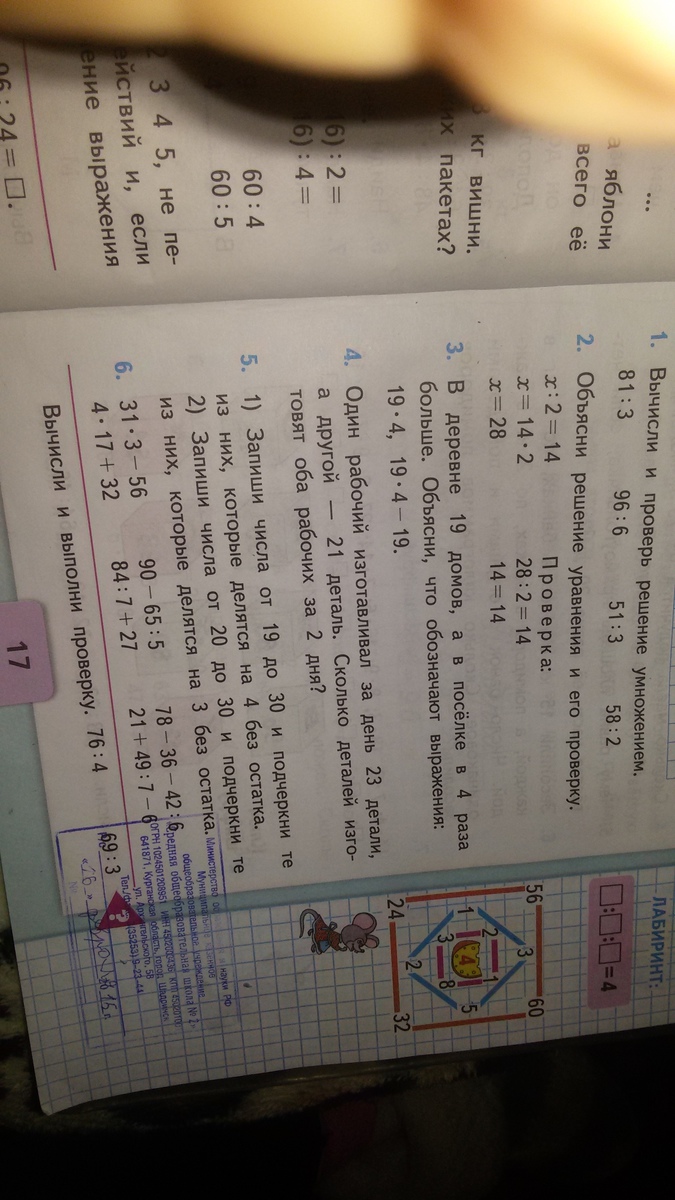 ...
яблони
всего её
кг вишни.
пакетах?
6) : 2 =
6) : 4 =
60 : 4
60 : 5
2 3 4 5, не пе-
ействий и, если
ение выражения
96 : 24 = □.
1. Вычисли и проверь решение умножением.
81 : 3 96 : 6 51 : 3 58 : 2
2. Объясни решение уравнения и его проверку.
x : 2 = 14 Проверка:
x = 14 · 2 28 : 2 = 14
x = 28 14 = 14
3. В деревне 19 домов, а в посёлке в 4 раза
больше. Объясни, что обозначают выражения:
19 · 4, 19 · 4 – 19.
4. Один рабочий изготавливал за день 23 детали,
а другой — 21 деталь. Сколько деталей изго-
товят оба рабочих за 2 дня?
5. 1) Запиши числа от 19 до 30 и подчеркни те
из них, которые делятся на 4 без остатка.
2) Запиши числа от 20 до 30 и подчеркни те
из них, которые делятся на 3 без остатка.
6. 31 · 3 – 56 90 – 65 : 5 78 – 36 – 42 : 6
4 · 17 + 32 84 : 7 + 27 21 + 49 : 7 – 6
Вычисли и выполни проверку. 76 : 4 69 : 3
?
17
ЛАБИРИНТ:
□ : □ : □ = 4
56 60
3
2 1
4
1 5
3 8
2
24 32
науки РФ
общеобразовательное учреждение
средняя общеобразовательная школа № 2
641871, Курганская область, город Шадринск
ул. Архангельского, 58